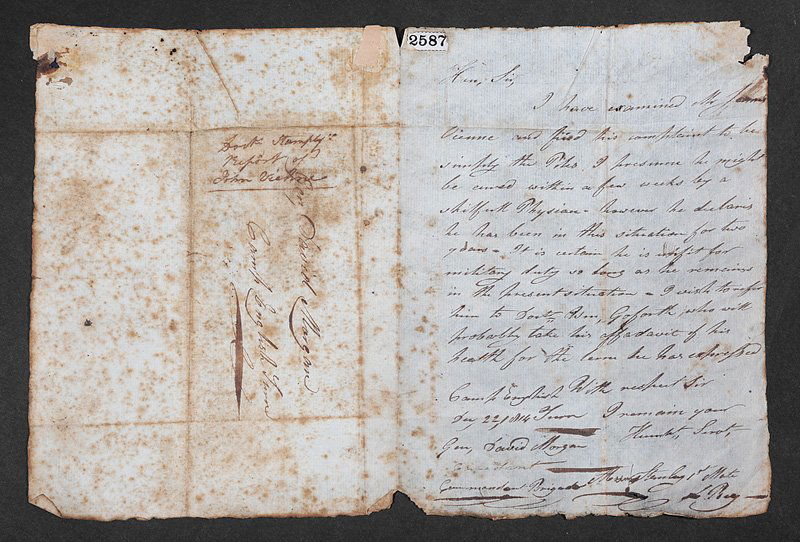 2587
Hon, Sir,
I have examined Mr James
Vienne and find his complaint to be
simply the Piles. I presume he might
be cured within a few weeks by a
skilfull Physian - however he declares
he has been in this situation for two
years - It is certain he is unfit for
military duty so long as he remains
in the present situation - I wish to refer
him to Doctr. Wm. Goforth who will
probably take his affadavit of his
health for the term he has expressed
Camp English With respect Sir
Dec 22, 1814 Turn I remain your
Humbl, Servt,
Gen, David Morgan
Commandant Brigade 1st Mate
Reg
Doctr
Report of
John Vienne
David Morgan
Camp English Turn